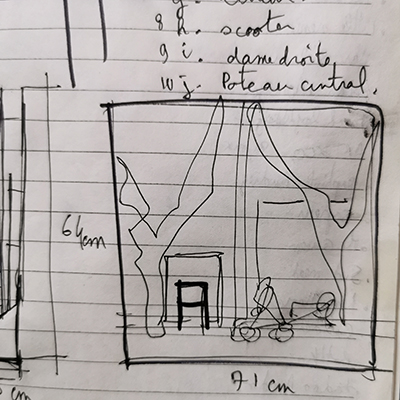 8 h. scooter
9 i. dame droite
10 j. Poteau central.
64cm
71 cm